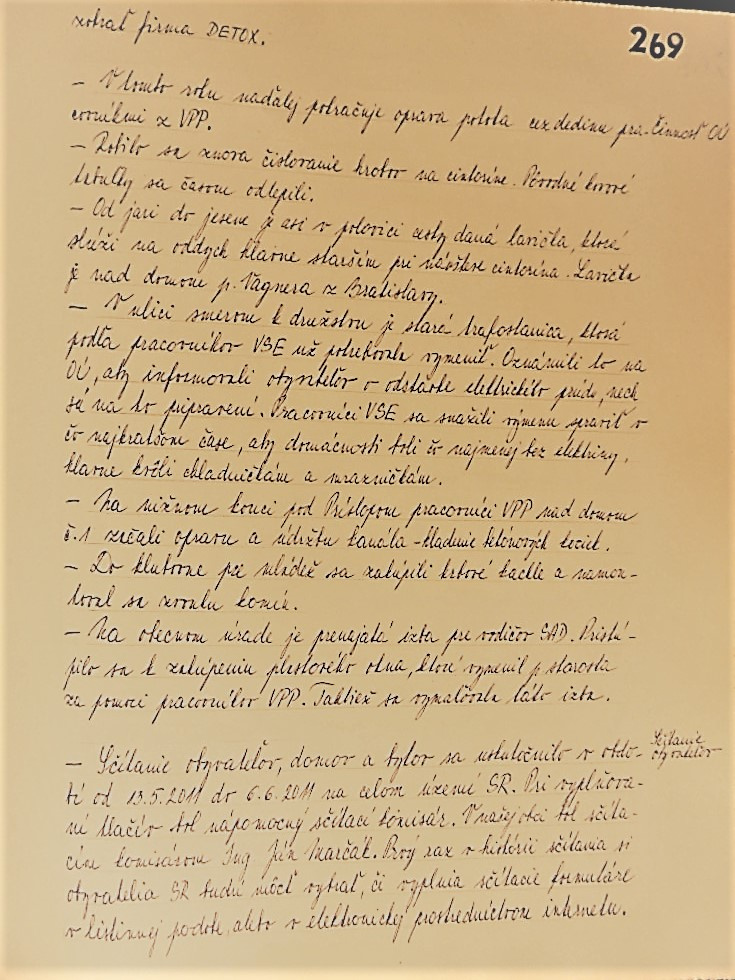 269
zobrať firma DETOX.
– V tomto roku naďalej pokračuje oprava potoka cez dedinu pra-
covníkmi z VPP.
Činnosť OÚ
– Robilo sa znova číslovanie hrobov na cintoríne. Pôvodné kovové
tabuľky sa časom odlepili.
– Od jari do jesene je asi v polovici cesty daná lavička, ktorá
slúži na oddych hlavne starším pri návšteve cintorína. Lavička
je nad domom p. Vagnera z Bratislavy.
– V ulici smerom k družstvu je stará trafostanica, ktorá
podľa pracovníkov VSE už potrebovala vymeniť. Oznámili to na
OÚ, aby informovali obyvateľov o odstávke elektrického prúdu, nech
sú na to pripravení. Pracovníci VSE sa snažili výmenu spraviť v
čo najkratšom čase, aby domácnosti boli čo najmenej bez elektriny,
hlavne kvôli chladničkám a mrazničkám.
– Na nižnom konci pod Prístopom pracovníci VPP nad domom
č.1 začali opravu a údržbu kanála – kladenie betónových kociek.
– Do klubovne pre mládež sa zakúpili krbové kachle a namon-
toval sa zvonku komín.
– Na obecnom úrade je prenajatá izba pre vodičov SAD. Pristú-
pilo sa k zakúpeniu plastového okna, ktoré vymenil p. starosta
za pomoci pracovníkov VPP. Taktiež sa vymaľovala táto izba.
– Sčítanie obyvateľov, domov a bytov sa uskutočnilo v obdo-
Sčítanie
obyvateľov
bí od 13.5.2011 do 6.6.2011 na celom území SR. Pri vyplňova-
ní tlačív bol nápomocný sčítací komisár. V našej obci bol sčíta-
cím komisárom Ing. Ján Marčák. Prvý raz v histórii sčítania si
obyvatelia SR budú môcť vybrať, či vyplnia sčítacie formuláre
v listinnej podobe, alebo v elektronickej prostredníctvom internetu.